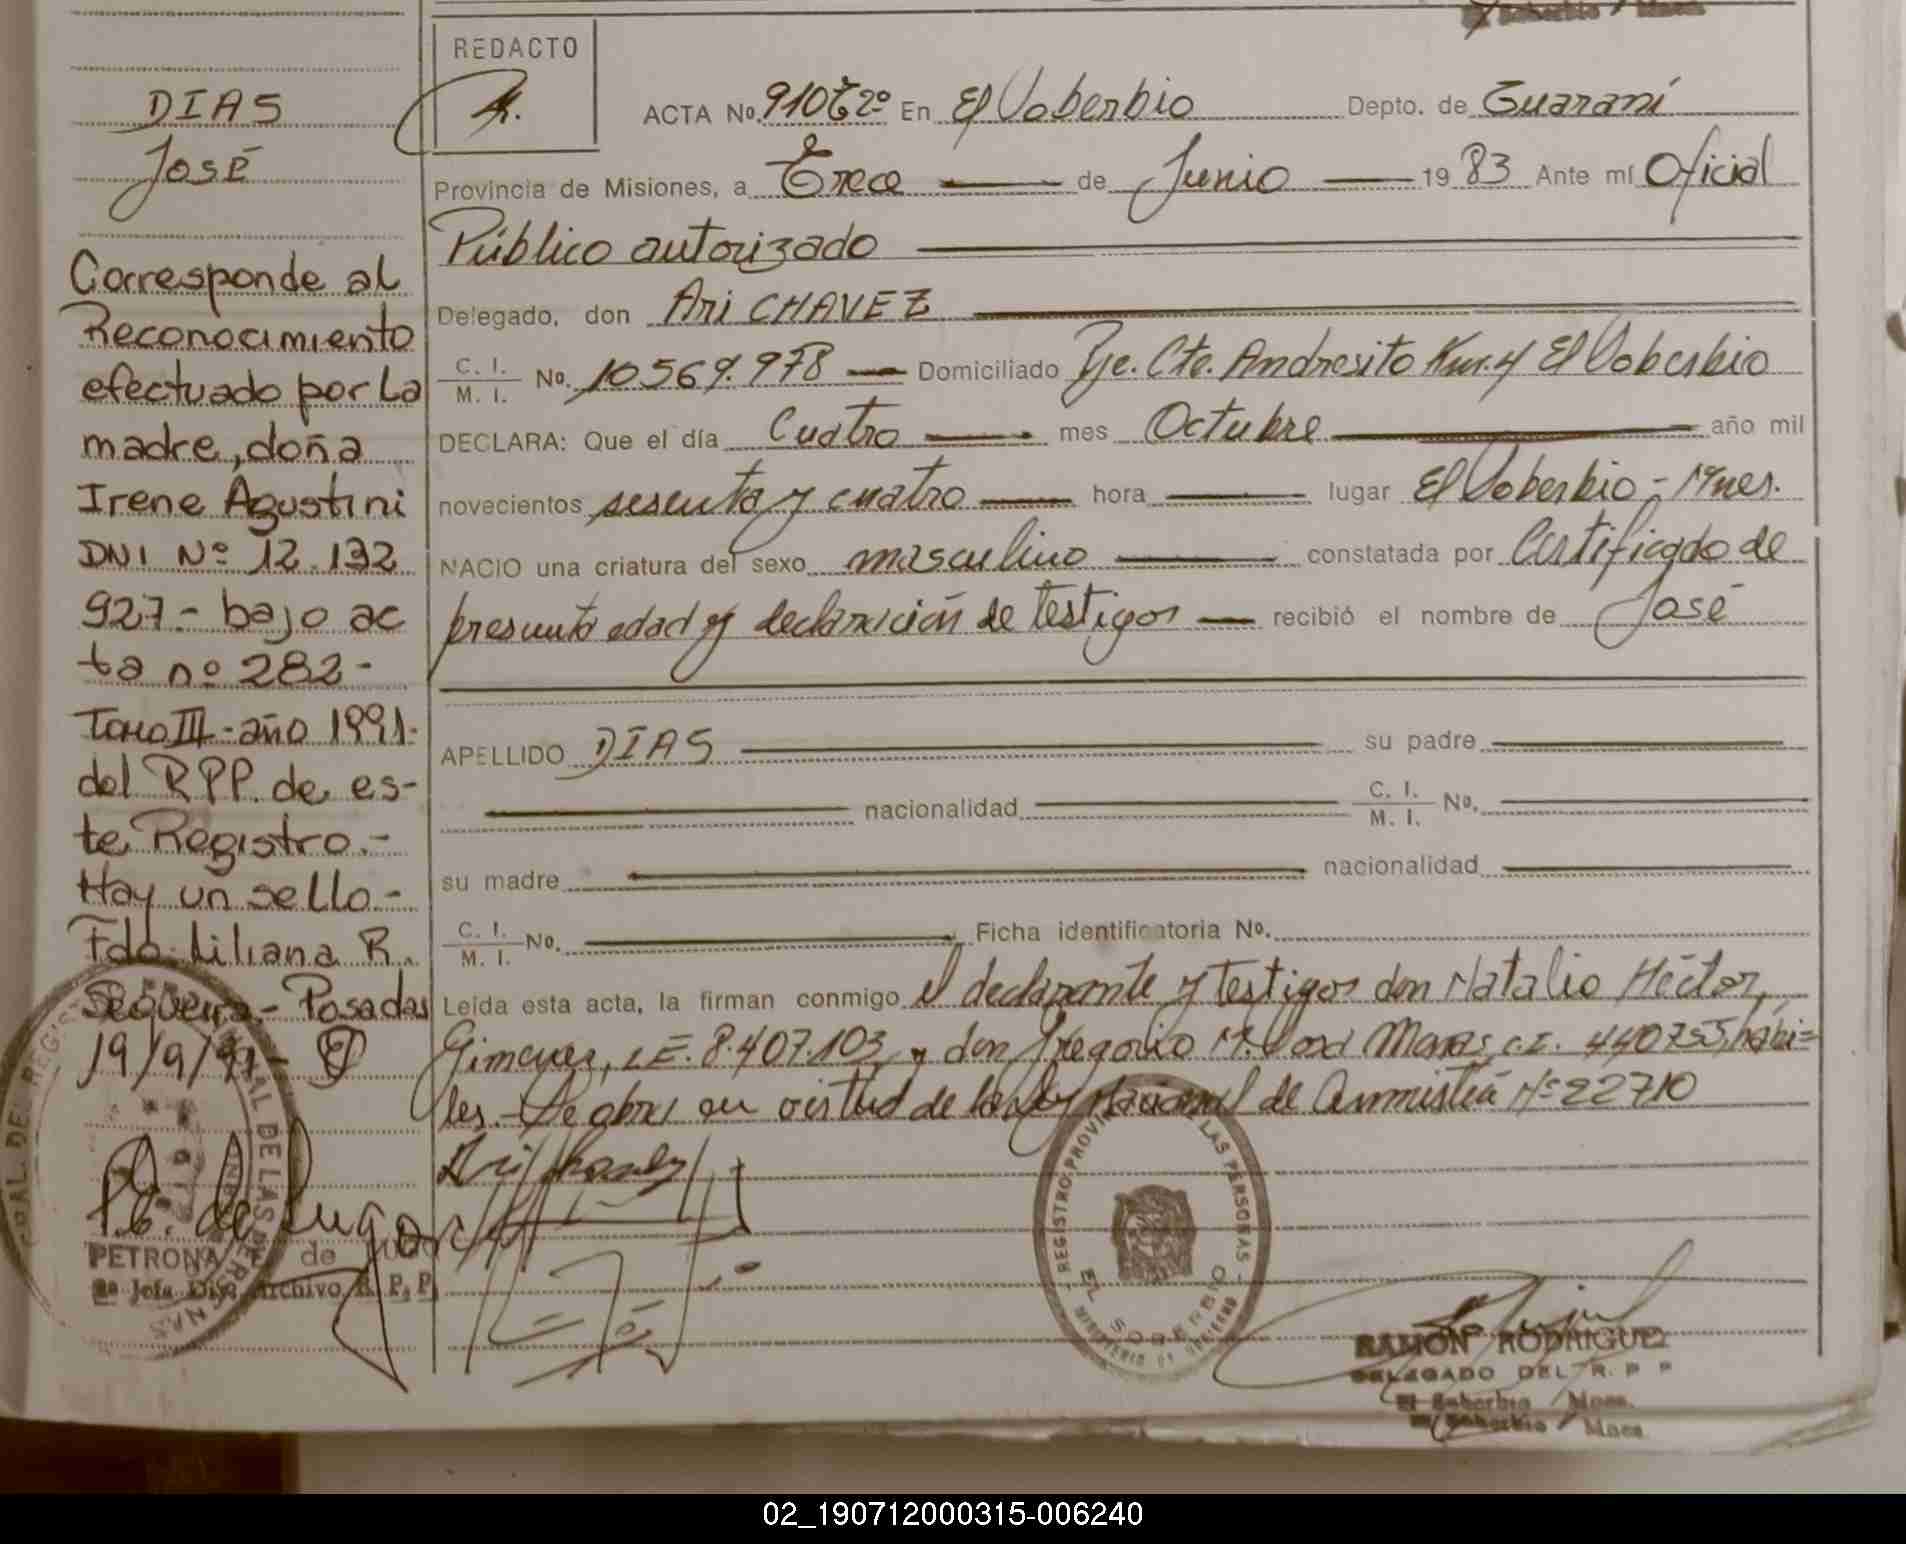 DIAS
José
Corresponde al
Reconocimiento
efectuado por la
madre, doña
Irene Agustini
DNI Nº 12.132
927 - bajo ac
ta nº 282 -
Tomo III - año 1991.
del RPP. de es-
te Registro.-
Hay un sello -
Fdo. Liliana R.
Sequeira - Posadas
19/9/91 -
PETRONA de
Jefa Div. Archivo R. P. P.
REDACTO
ACTA No. 910 Tº 2º En El Soberbio Depto. de Guaraní
Provincia de Misiones, a Trece de Junio 19 83 Ante mí Oficial
Público autorizado
Delegado, don Ari CHAVEZ
C. I.
M. I. No. 10.569.978 Domiciliado Pje. Cte. Andresito Km. 4 El Soberbio
DECLARA: Que el día Cuatro mes Octubre año mil
novecientos sesenta y cuatro hora lugar El Soberbio - Mnes.
NACIO una criatura del sexo masculino constatada por Certificado de
presunta edad y declaración de testigos recibió el nombre de José
APELLIDO DIAS su padre
nacionalidad C. I.
M. I. No.
su madre nacionalidad
C. I.
M. I. No. Ficha identificatoria No.
Leída esta acta, la firman conmigo el declarante y testigos don Natalio Héctor
Gimenez, L.E. 8.407.103 y don Gregorio M. C.I. 440755, hábi=
les. Se obra en virtud de la Ley Nacional de Amnistía Nº 22710
REGISTRO PROVINCIAL DE LAS PERSONAS
EL SOBERBIO
MINISTERIO DE GOBIERNO
RAMON RODRIGUEZ
DELEGADO DEL R. P P
El Soberbio Mnes.
El Soberbio Mnes
02_190712000315-006240